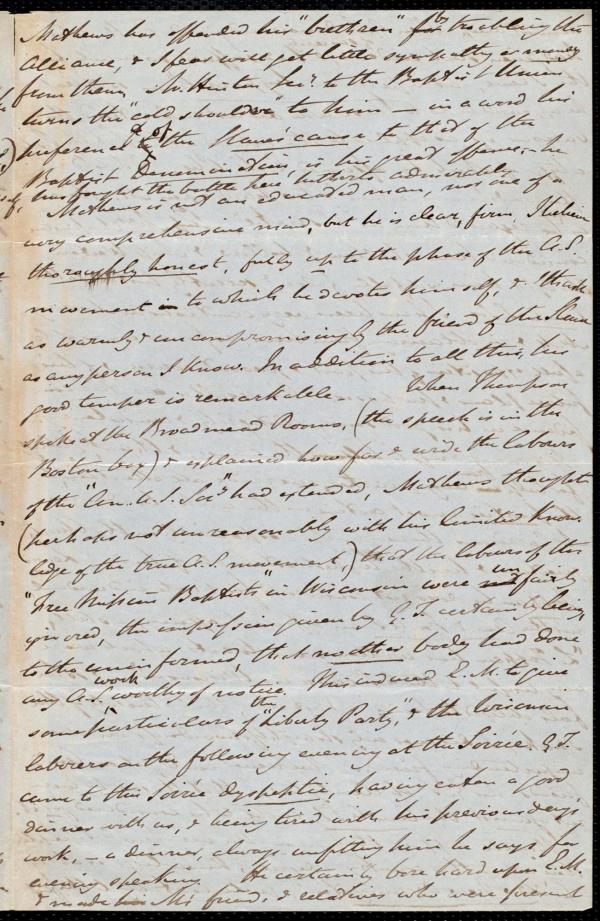 Mathews has offended his "brethren" by troubling the
Alliance, & I fear will get little sympathy or money
from them. Mr. Hinton Secy. to the Baptist Union
turns the "cold shoulder" to him — in a word his
preference of the Slave's cause to that of the
Baptist Denomination, is his great offence, — he
has fought the battle here, hitherto admirably.
Mathews is not an educated man, nor one of a
very comprehensive mind, but he is clear, firm, I believe
thoroughly honest, fully up to the phase of the A.S.
movement to which he devotes himself, &
as warmly & uncompromisingly the friend of the Slave
as any person I know. In addition to all this, his
good temper is remarkable — When Thompson
spoke at the Broadmead Rooms, (the speech is in the
Boston box) & explained how far & wide the labours
of the "Am. A.S. Socy." had extended, Mathews thought
(perhaps not unreasonably with his limited know-
ledge of the true A.S. movement,) that the labours of the
"Free Mission Baptists" in Wisconsin were unfairly
ignored, the impression given by G.T. certainly being,
to the uninformed, that no other body had done
any A.S. work worthy of notice. This induced E.M. to give
some particulars of the "Liberty Party", & the Wisconsin
laborers on the following evening at the Soirée. G.T.
came to this Soirée dyspeptic, having eaten a good
dinner with us, & being tired with his previous day's
work, — a dinner, always unfitting him he says for
evening speaking. He certainly bore hard upon E.M.
& made his friends & relatives who were present